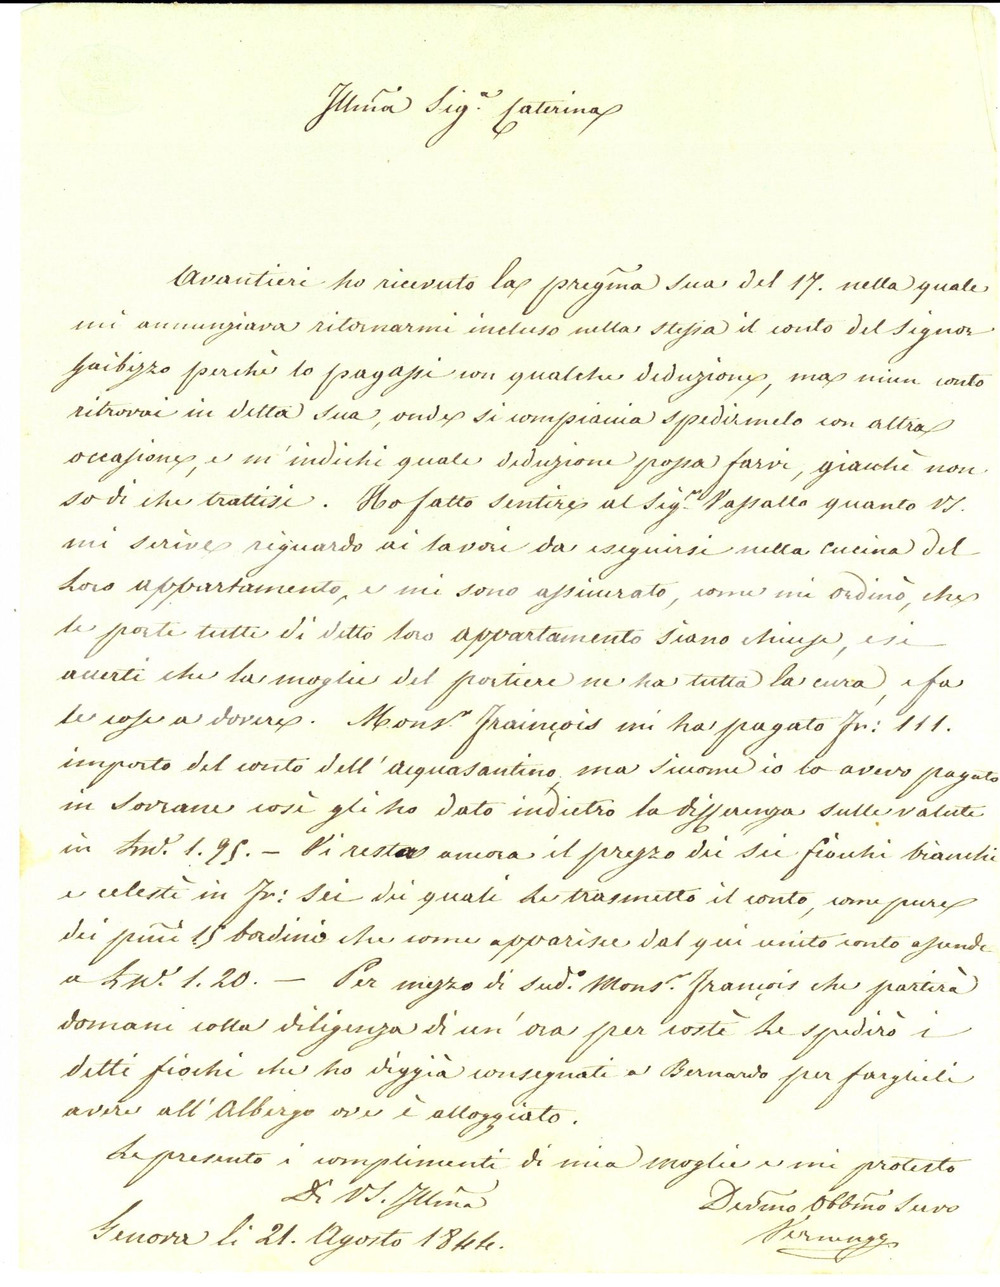 Illm̃a Sig.ª Caterina
Avantieri ho ricevuto la pregm̃a sua del 17. nella quale
mi annunziava ritornarmi incluso nella stessa il conto del Signor
Gaibizzo perchè lo pagassi con qualche deduzione, ma niun conto
ritrovai in detta sua, onde si compiacia spedirmelo con altra
occasione, e m'indichi quale deduzione possa farvi, giacchè non
so di che trattisi. Ho fatto sentire al Sig.r Vassallo quanto VS.
mi scrive riguardo ai lavori da eseguirsi nella cucina del
loro appartamento, e mi sono assicurato, come mi ordinò, che
le porte tutte di detto loro appartamento siano chiuse, e si
accerti che la moglie del portiere ne ha tutta la cura, e fa
le cose a dovere. Mons.r François mi ha pagato Fr: 111.
importo del conto dell'Acquasantino, ma siccome io lo avevo pagato
in Sovrane così gli ho dato indietro la differenza sulle valute
in Ln.e 1.95. – Vi resta ancora il prezzo dei sei fiocchi bianchi
e celesti in Fr: Sei dei quali Le trasmetto il conto, come pure
dei pmĩ 15 bordino che come apparisce dal qui unito conto ascende
a Ln.e 1.20. – Per mezzo di sud.o Mons.r François che partirà
domani colla diligenza di un'ora per costì Le spedirò i
detti fiochi che ho diggià consegnati a Bernardo per farglieli
avere all'Albergo ove è alloggiato.
Le presento i complimenti di mia moglie e mi protesto
Di VS. Illm̃a
Devm̃o Obblm̃o Servo
Genova li 21. Agosto 1844.